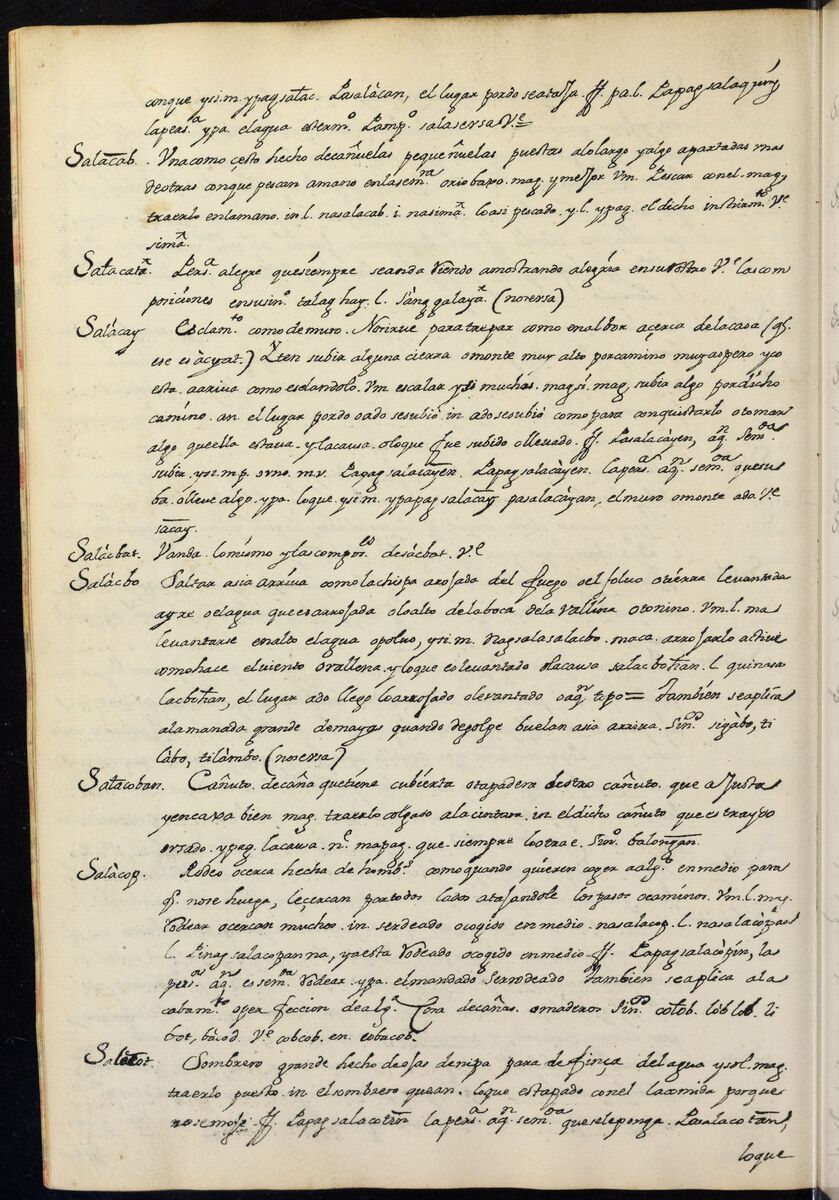 conque y si. m. ypag salac. Pasalàcan, el lugar por do se ataja. ff. pa. l. Papag salaquin,
la pers.ª ypa. el agua esterm.º Lamp.º salasersa V.e
Salacab. Vna como çesto hecho de cañuelas pequeñuelas puestas alo largo y algo apartadas mas
de otras con que pescan amano en la sem.ra o rio baxo. mag. y mejor Vm. Pescar con el. mag,
traerlo en la mano. in. l. nasalacab. i. nasimà. lo asi pescado. y. l. ypag. el dicho instrum.to V.e
simà.
Salacatà. Pers.ª alegre que siempre se anda riendo a mostrando alegria en su rostro V.e las com
posiciones en su sin.º talag hay. l. sàng galayà. (no versa)
Salàcay Esclam.to como de muro. No sirue para trepar como en albor açerca de la casa (q.
ese es àcyat.) Yten subir alguna cierra o monte muy alto por camino muy aspero y co
esta arriva como escalandolo. Vm escalar, y si muchos. mag si. mag, subir algo por dicho
camino. an. el lugar por do o ado se subiò in ado se subiò como para conquistarlo o tomar
algo que ella estava. y la causa. o lo que fue subido o lleuado. ff. Pasalacàyen, aq.n sem.da
subir. y si. mp. o no. m. v. Papag salacàyen. Papag salacàyen. la pers.ª aq.n sem.da que su
ba. ò lleve algo. ypa. lo que. y si m. ypapag salacay pasalacàyan, el muro o monte ado. V.e
sacay.
Salàcbat. Vanda. lo mismo y las compos.es de sàcbat. V.e
Salàcbo Saltar asia arriva como la chispa arrojada del fuego o el poluo o tierra leuantada
ayre o el agua que es arrojada a lo alto de la boca de la Vallena o tonino. Vm. l. ma
levantarse en alto el agua o poluo, y si. m. Nagsalasalacbo. maca. arrojarlo active
como hace el viento o vallena. y lo que es levantado o la causa salacbohan. l. quinasa
lacbohan, el lugar ado llego lo arrojado o levantado o aq.n tepo = Tambien se aplica
ala manada grande de mayas quando de golpe buelan asia arriva. sin.os sigàbo, ti
làbo, tilàmbo. (no versa)
Salacoban. Cañuto de caña que tiene cubierta o tapadera de otro cañuto que ajusta
y encaxa bien mag. traerlo colgado a la cintura. in el dicho cañuto que es trayido
o vsado. ypag. la causa. n.e mapag. que siempre lo trae. sin.º balongan.
Salàcop. Rodeo o cerca hecha de homb.s como quando quieren coger a alg.º en medio para
q. no se huega, le çercan por todos lados atajandole los pasos o caminos. Vm. l. mag.
rodear o cercan muchos. in. ser deado o cogido en medio. nasalacop. l. nasalacòpan
l. Pinag salacopan na, ya esta rodeado o cogido en medio. ff. Papag salacòpin, las
pers.as aq.n es sem.da rodear. ypa. el mandado ser rodeado Tambien se aplica a la
cabam.to o perfeccion de alg.ª cosa de cañas. o maderos sin.os colob. lòblob. li
bot, bàcod. V.e cobcob. en cobacob.
Salacot. Sombrero grande hecho de ojas de nipa para definça del agua y sol. mag.
traerlo puesto. in el sombrero que an. lo que es tapado con el la comida porque
no se moje. ff. Papag salacotin la pers.ª aq.n sem.da que se le ponga. Pasalacotan,
lo que